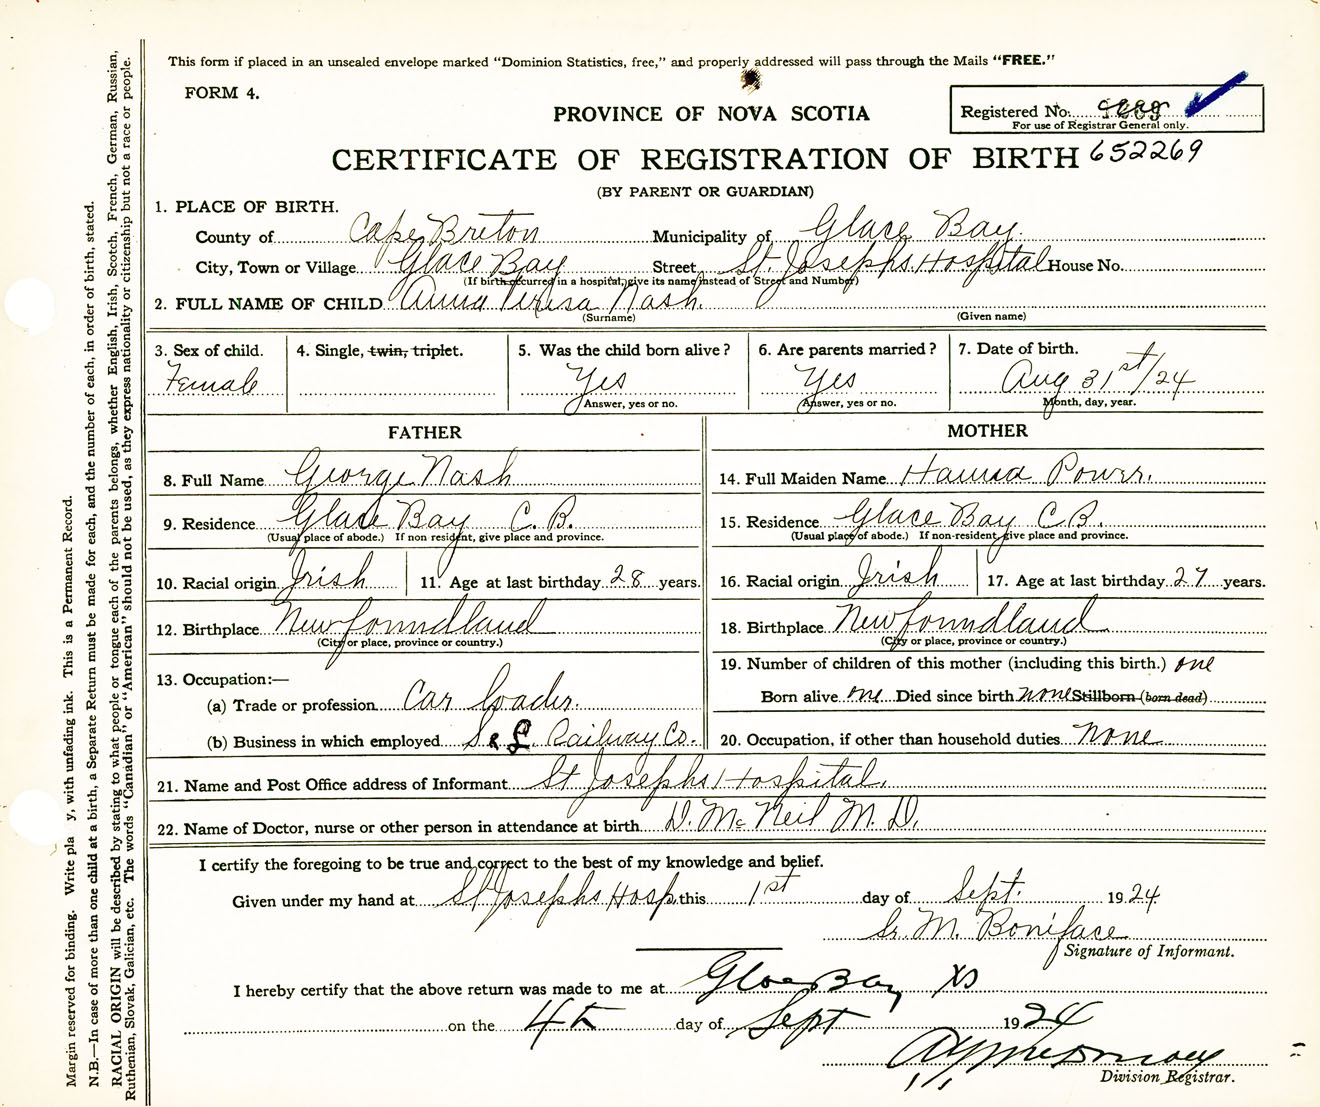 This form if placed in an unsealed envelope marked "Dominion Statistics, free," and properly addressed will pass through the Mails "FREE."
FORM 4.
PROVINCE OF NOVA SCOTIA
Registered No.
For use of Registrar General only.
CERTIFICATE OF REGISTRATION OF BIRTH 652269
(BY PARENT OR GUARDIAN)
1. PLACE OF BIRTH.
County of Cape Breton Municipality of Glace Bay.
City, Town or Village Glace Bay Street St. Josephs Hospital House No.
(If birth occurred in a hospital, give its name instead of Street and Number)
2. FULL NAME OF CHILD Anna Teresa Nash.
(Surname) (Given name)
3. Sex of child. 4. Single, twin, triplet. 5. Was the child born alive? 6. Are parents married? 7. Date of birth.
Female Yes Yes Aug 31st/24
Answer, yes or no. Answer, yes or no. Month, day, year.
FATHER MOTHER
8. Full Name George Nash 14. Full Maiden Name Power.
9. Residence Glace Bay C.B. 15. Residence Glace Bay C.B.
(Usual place of abode.) If non resident, give place and province. (Usual place of abode.) If non-resident, give place and province.
10. Racial origin Irish 11. Age at last birthday 28 years. 16. Racial origin Irish 17. Age at last birthday 27 years.
12. Birthplace Newfoundland 18. Birthplace Newfoundland
(City or place, province or country.) (City or place, province or country.)
13. Occupation:— 19. Number of children of this mother (including this birth.) one
(a) Trade or profession Car loader. Born alive one Died since birth none Stillborn (born dead)
(b) Business in which employed S & L Railway Co. 20. Occupation, if other than household duties none
21. Name and Post Office address of Informant St Josephs Hospital.
22. Name of Doctor, nurse or other person in attendance at birth D. McNeil M.D.
I certify the foregoing to be true and correct to the best of my knowledge and belief.
Given under my hand at St Josephs Hosp. this 1st day of Sept. 1924
Sr. M. Boniface
Signature of Informant.
I hereby certify that the above return was made to me at Glace Bay NS
on the 4th day of Sept 1924
Division Registrar.
Margin reserved for binding. Write pla y, with unfading ink. This is a Permanent Record.
N.B.—In case of more than one child at a birth, a Separate Return must be made for each, and the number of each, in order of birth, stated.
RACIAL ORIGIN will be described by stating to what people or tongue each of the parents belongs, whether English, Irish, Scotch, French, German, Russian,
Ruthenian, Slovak, Galician, etc. The words "Canadian" or "American" should not be used, as they express nationality or citizenship but not a race or people.